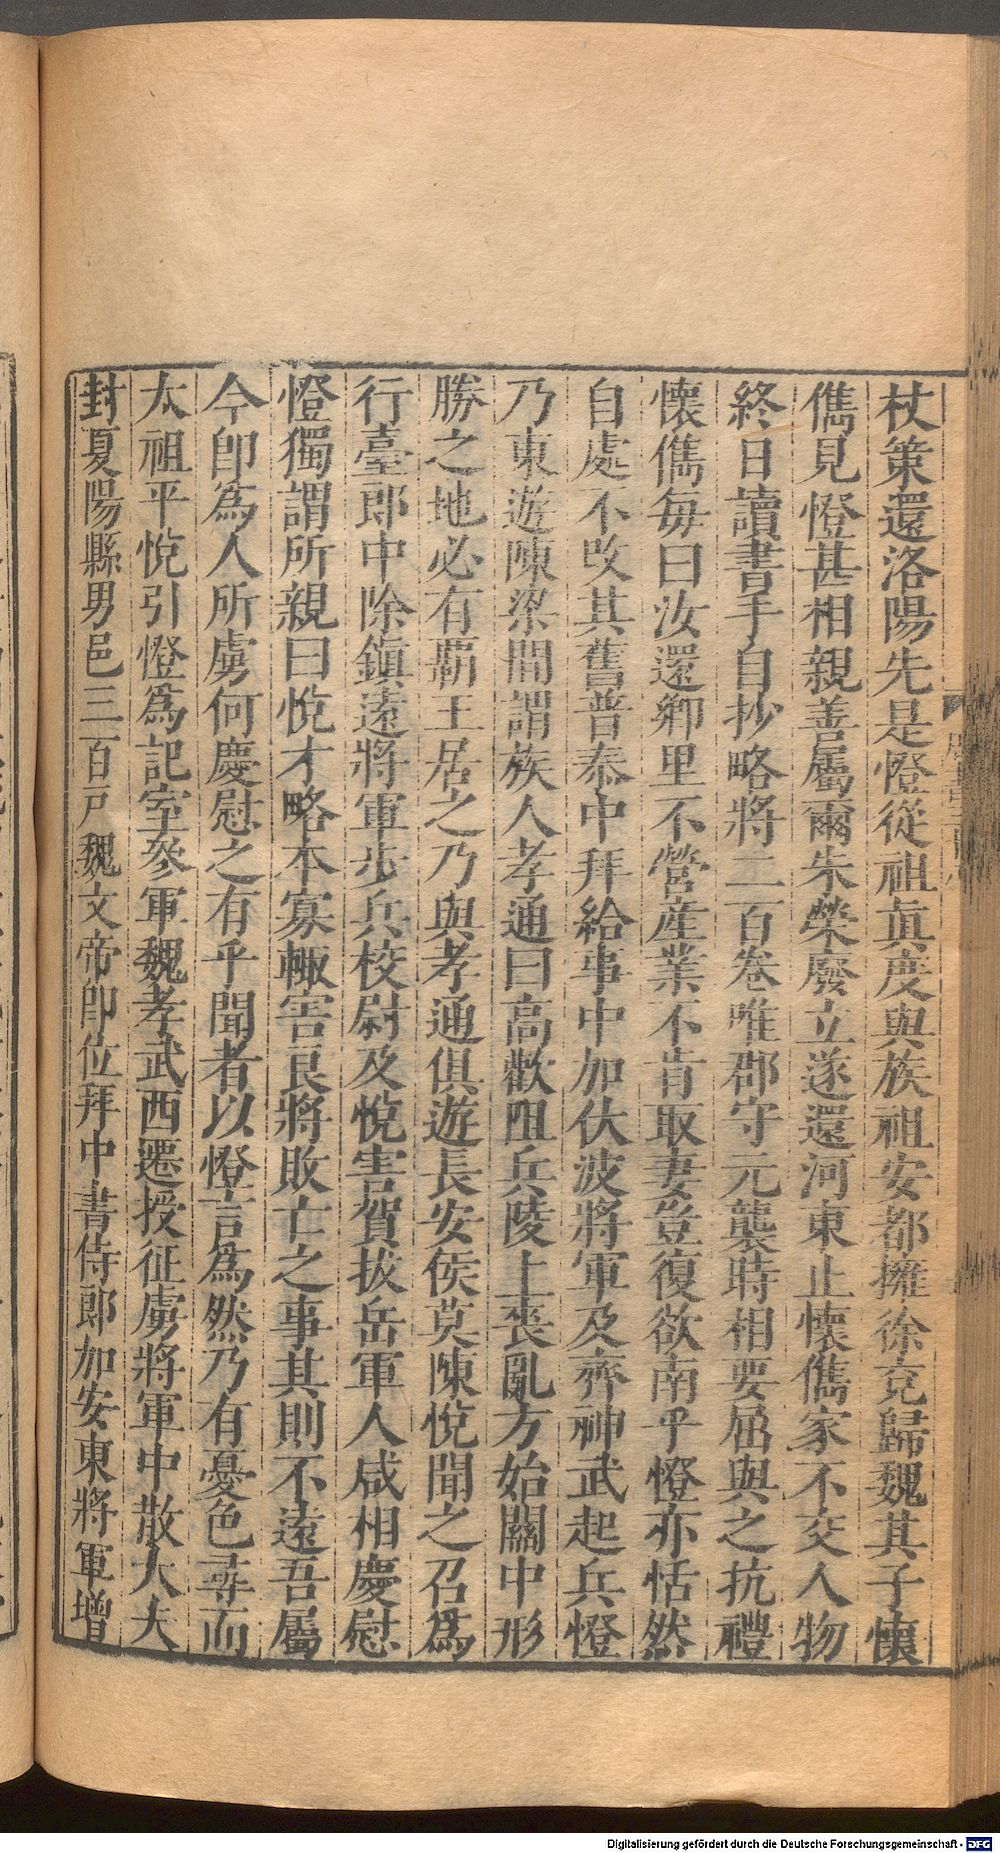 杖策還洛陽先是憕從祖眞度與族祖安都擁徐兗歸魏其子懷
儁見憕甚相親善屬爾朱榮廢立遂還河東止懷儁家不交人物
終日讀書手自抄略將二百卷唯郡守元襲時相要屈與之抗禮
懷儁每曰汝還鄉里不營產業不肯取妻豈復欲南乎憕亦恬然
自處不改其舊普泰中拜給事中加伏波將軍及齊神武起兵憕
乃東遊陳梁間謂族人孝通曰高歡阻兵陵上喪亂方始關中形
勝之地必有覇王居之乃與孝通俱遊長安侯莫陳悅聞之召爲
行臺郎中除鎮遠將軍步兵校尉及悅害賀拔岳軍人咸相慶慰
憕獨謂所親曰悅才略本寡輙害良將敗亡之事其則不遠吾屬
今卽爲人所虜何慶慰之有乎聞者以憕言爲然乃有憂色尋而
太祖平悅引憕爲記室參軍魏孝武西遷授征虜將軍中散大夫
封夏陽縣男邑三百戸魏文帝卽位拜中書侍郎加安東將軍增
Digitalisierung gefördert durch die Deutsche Forschungsgemeinschaft - DFG